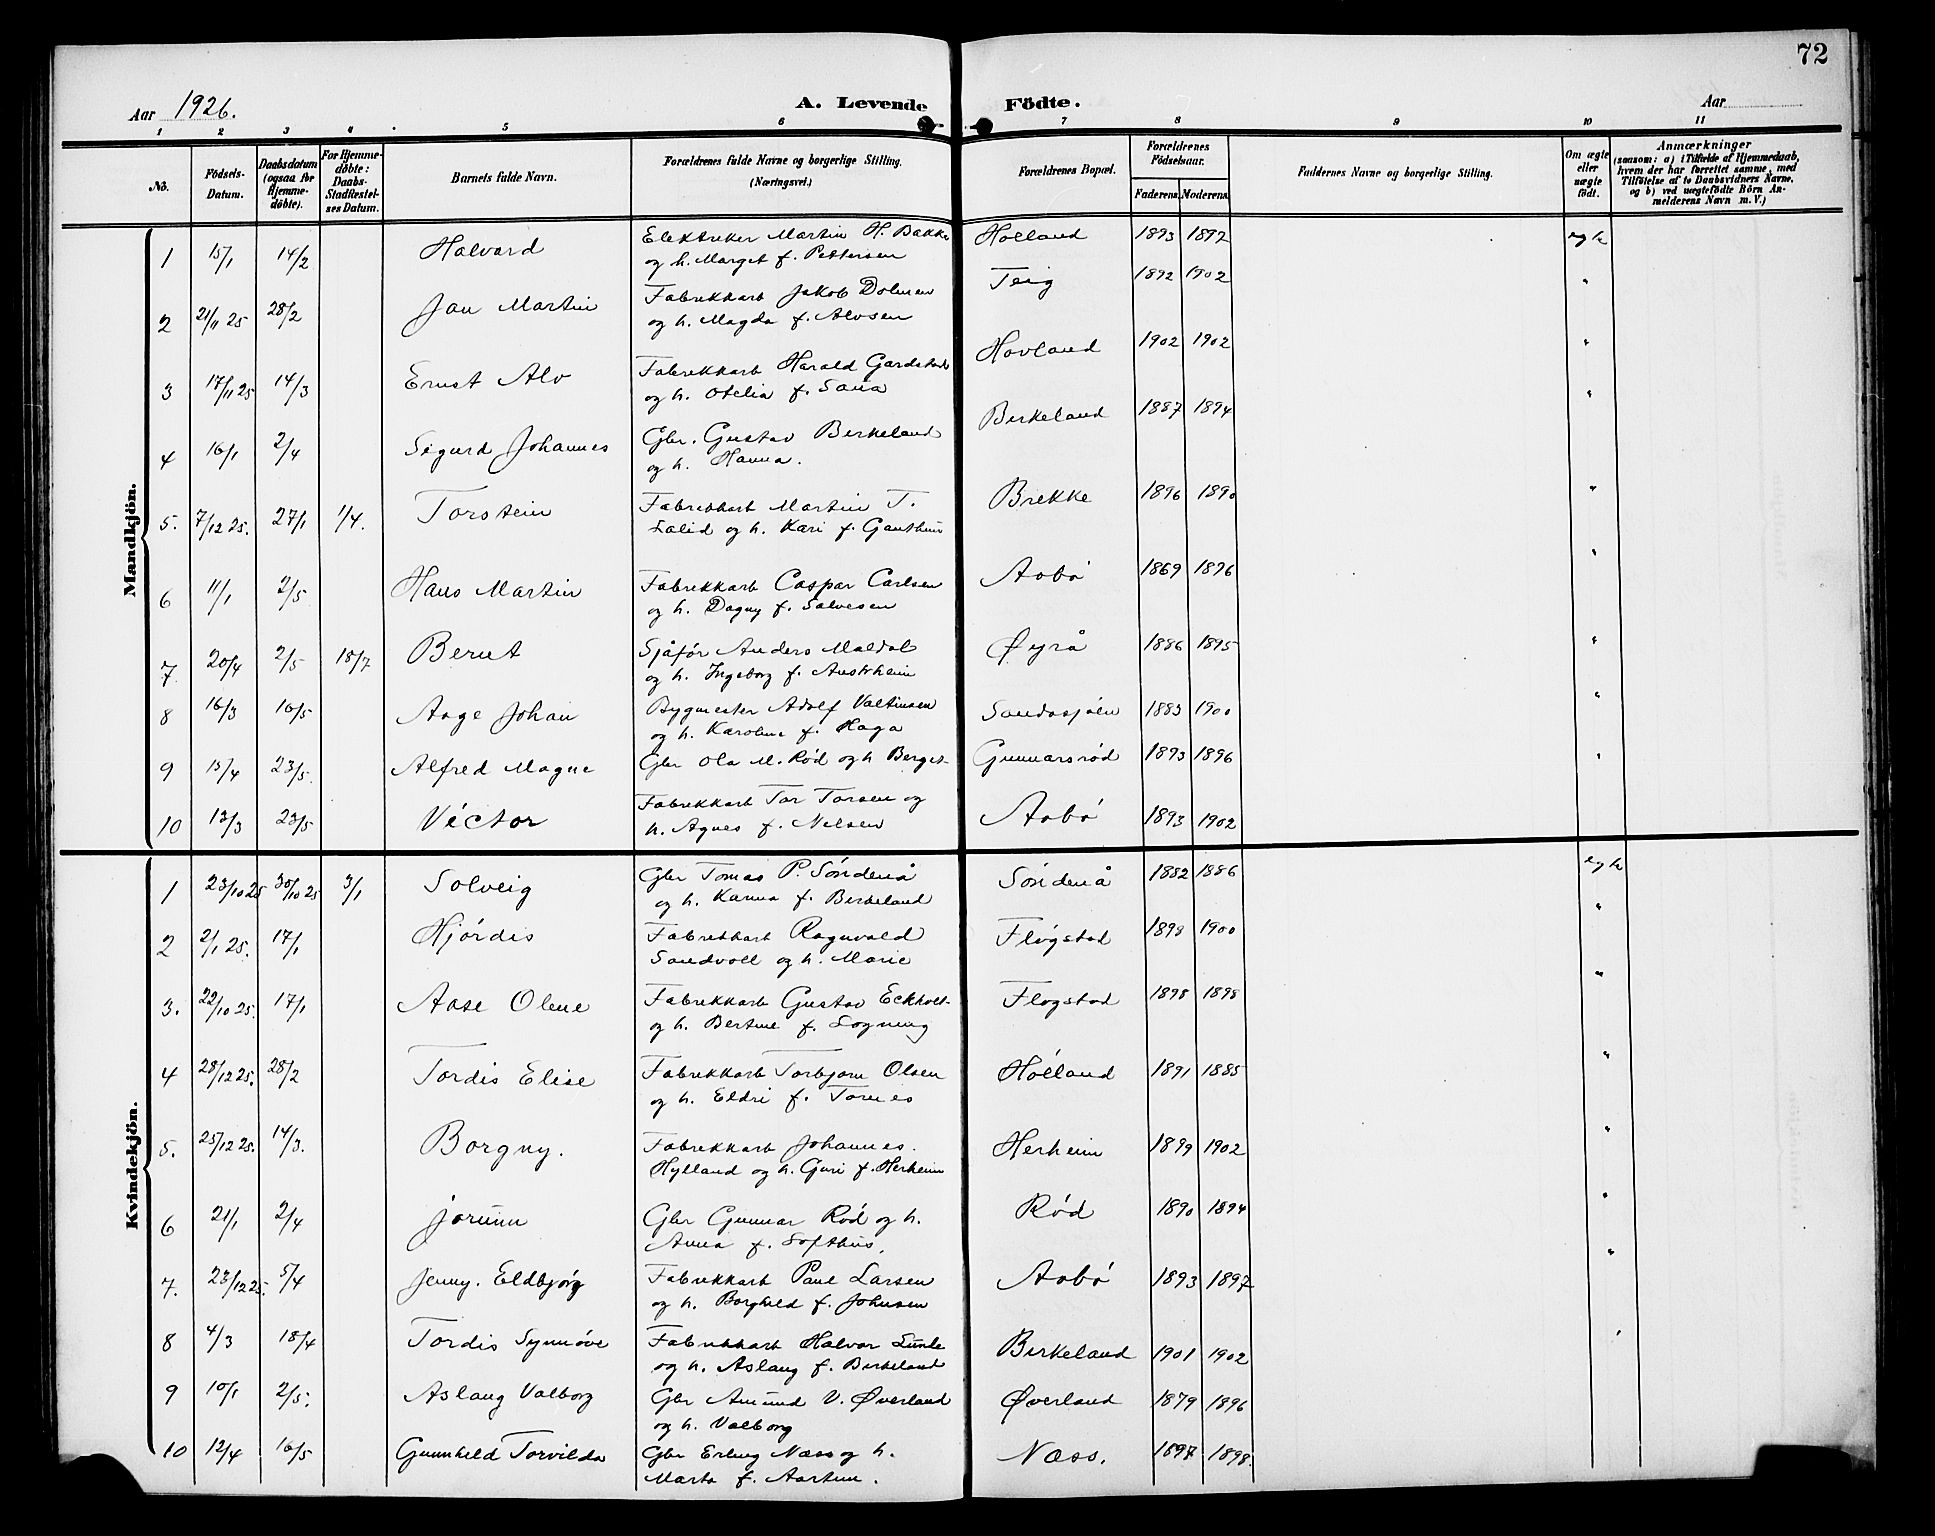 72
Aar 1926.
A. Levende Födte.
Aar
1 2 3 4 5 6 7 8 9 10 11
No.
Födsels-Datum.
Daabsdatum (ogsaa for Hjemme-döbte).
For Hjemme-döbte: Daabs-Stadfæstel-ses Datum.
Barnets fulde Navn.
Forældrenes fulde Navne og borgerlige Stilling. (Næringsvei.)
Forældrenes Bopæl.
Forældrenes Födselsaar.
Faderens. Moderens.
Faddernes Navne og borgerlige Stilling.
Om ægte eller uægte födt.
Anmærkninger (saasom: a) i Tilfælde af Hjemmedaab, hvem der har forrettet samme, med Tilföielse af to Daabsvidners Navne, og b) ved uægtefödte Börn An-melderens Navn m. V.)
Mandkjön.
1 15/1 14/2 Halvard Elektriker Martin H. Bakke og h. Marget f. Pettersen Hølland 1893 1892 egte
2 21/11 25 28/2 Jan Martin Fabrikkarb Jakob Dolmen og h. Magda f. Alvsen Teig 1892 1902 "
3 17/11 25 14/3 Ernst Alv Fabrikkarb Harald Gardstad og h. Otelia f. Sana Hovland 1902 1902 "
4 16/1 2/4 Sigurd Johannes Gbr. Gustav Birkeland og h. Hanna. Birkeland 1887 1894 "
5. 7/12 25. 27/1 1/4. Torstein Fabrikkarb Martin T. Lalid og h. Kari f. Brekke 1896 1890 "
6 11/1 2/5 Hans Martin Fabrikkarb Caspar Carlsen og h. Dagny f. Salvesen Aabø 1869 1896 "
7. 20/4 2/5 18/7 Bernt Sjåfør Anders Maldal og h. Ingeborg f. Austrheim Øyrå 1886 1895 "
8 16/3 16/5 Aage Johan Bygmester Adolf Valtinsen og h. Karoline f. Haga Sandssjøen 1883 1900 "
9 15/4 23/5. Alfred Magne Gbr Ola M. Rød og h Berget Gunnarsrød 1893 1896 "
10 13/3 23/5 Victor Fabrikkarb Tor Torsen og h. Agnes f. Nelsen Aabø 1893 1902
Kvindekjön.
1 23/10 25 30/10 25 3/1 Solveig Gbr Tomas P. Søndenå og h. Kanna f. Birkeland Søndenå 1882 1886 egte
2 2/1 25. 17/1 Hjørdis Fabrikkarb Ragnvald Sandvoll og h. Marie Fløgstad 1898 1900 "
3. 22/10 25. 17/1 Aase Olene Fabrikkarb Gustav Eckholt og h. Bertine f. Sogning Fløgstad 1898 1898 "
4 28/12 25. 28/2 Tordis Elise Fabrikkarb Torbjørn Olsen og h. Eldri f. Tornes Hølland 1891 1885 "
5. 25/12 25. 14/3. Borgny. Fabrikkarb Johannes. Hylland og h. Guri f. Herheim Herheim 1899 1902 "
6 21/1 2/4 Jorunn Gbr Gunnar Rød og h. Anna f. Softhus. Rød 1890 1894 "
7. 23/12 25. 5/4 Jenny. Eldbjørg Fabrikkarb Paul Larsen og h. Borghild f. Johnsen Aabø 1893 1897 "
8 4/3 18/4 Tordis Synnøve Fabrikkarb Halvor Lunde og h. Aslaug f. Birkeland Birkeland 1901 1902
9 10/1 2/5. Aslaug Valborg Gbr Amund V. Øverland og h. Valborg Øverland 1879 1896
10 12/4 16/5 Gunnhild Torvilda Gbr Erling Næss og h. Marta f. Aartun. Næss. 1897 1898.